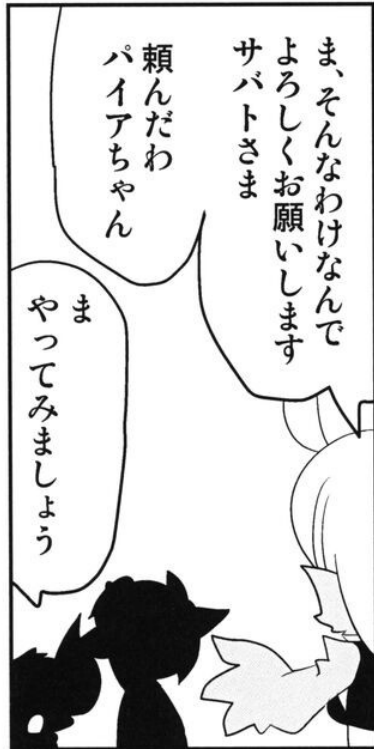 ま、そんなわけなんで
よろしくお願いします
サバトさま
頼んだわ
パイアちゃん
ま
やってみましょう